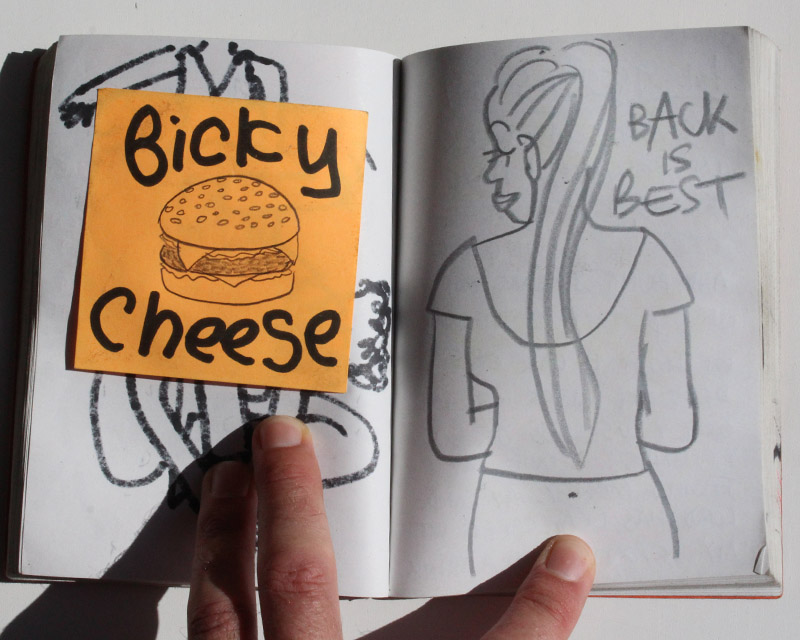 Bicky
Cheese
BACK
IS
BEST